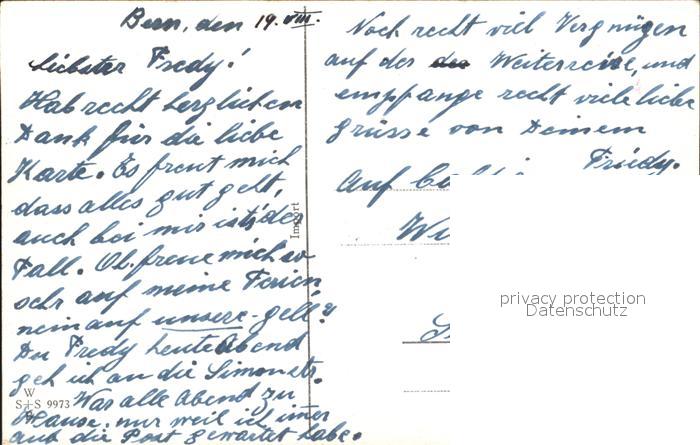 Bern, den 19. VIII.
liebster Fredy!
Hab recht herzlichen
Dank für die liebe
Karte. Es freut mich
dass alles gut geht,
auch bei mir ist's der
Fall. Oh freue mich so
sehr auf meine Ferien
nein auf unsere - gell?
Du Fredy heute Abend
geh ich an die Simonstr.
Was alle Abend zu
Hause, nur weil ich imer
auf die Post gewartet habe.
Noch recht viel Vergnügen
auf der Weiterreise, und
empfange recht viele liebe
Grüsse von Deinem
Friedy.
Auf
Import
W
S+S 9973
privacy protection
Datenschutz